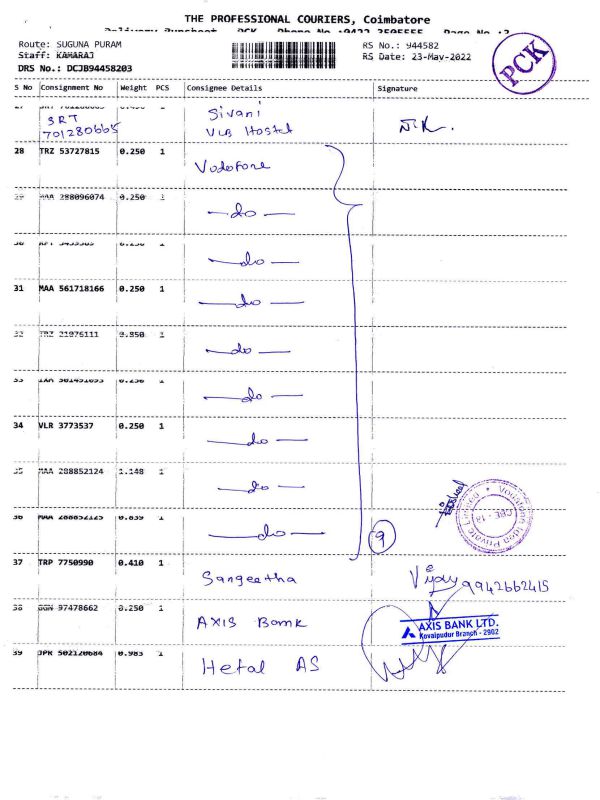 THE PROFESSIONAL COURIERS, Coimbatore
Delivery Runsheet PCK Phone No :0422 3505555 Page No :3
Route: SUGUNA PURAM
Staff: KAMARAJ
DRS No.: DCJB94458203
RS No.: 944582
RS Date: 23-May-2022
PCK
S No Consignment No Weight PCS Consignee Details Signature
27
SRT Sivani
701280665 VLB Hostel
28 TRZ 53727815 0.250 1 Vodofone
29 MAA 288096074 0.250 1 —do—
30 —do—
31 MAA 561718166 0.250 1 —do—
32 TRZ 21976111 1 —do—
33 —do—
34 VLR 3773537 0.250 1 —do—
35 MAA 288852124 1.148 1 —do—
36 MAA 288852125 0.839 1 —do— 9
Vodafone Idea Private Limited
CBE - 18
37 TRP 7750990 0.410 1 Sangeetha Vijay 9942662415
38 GGN 97478662 0.250 1 AXIS Bank
AXIS BANK LTD.
Kovaipudur Branch - 2902
39 JPR 502120684 0.983 1 Hetal AS